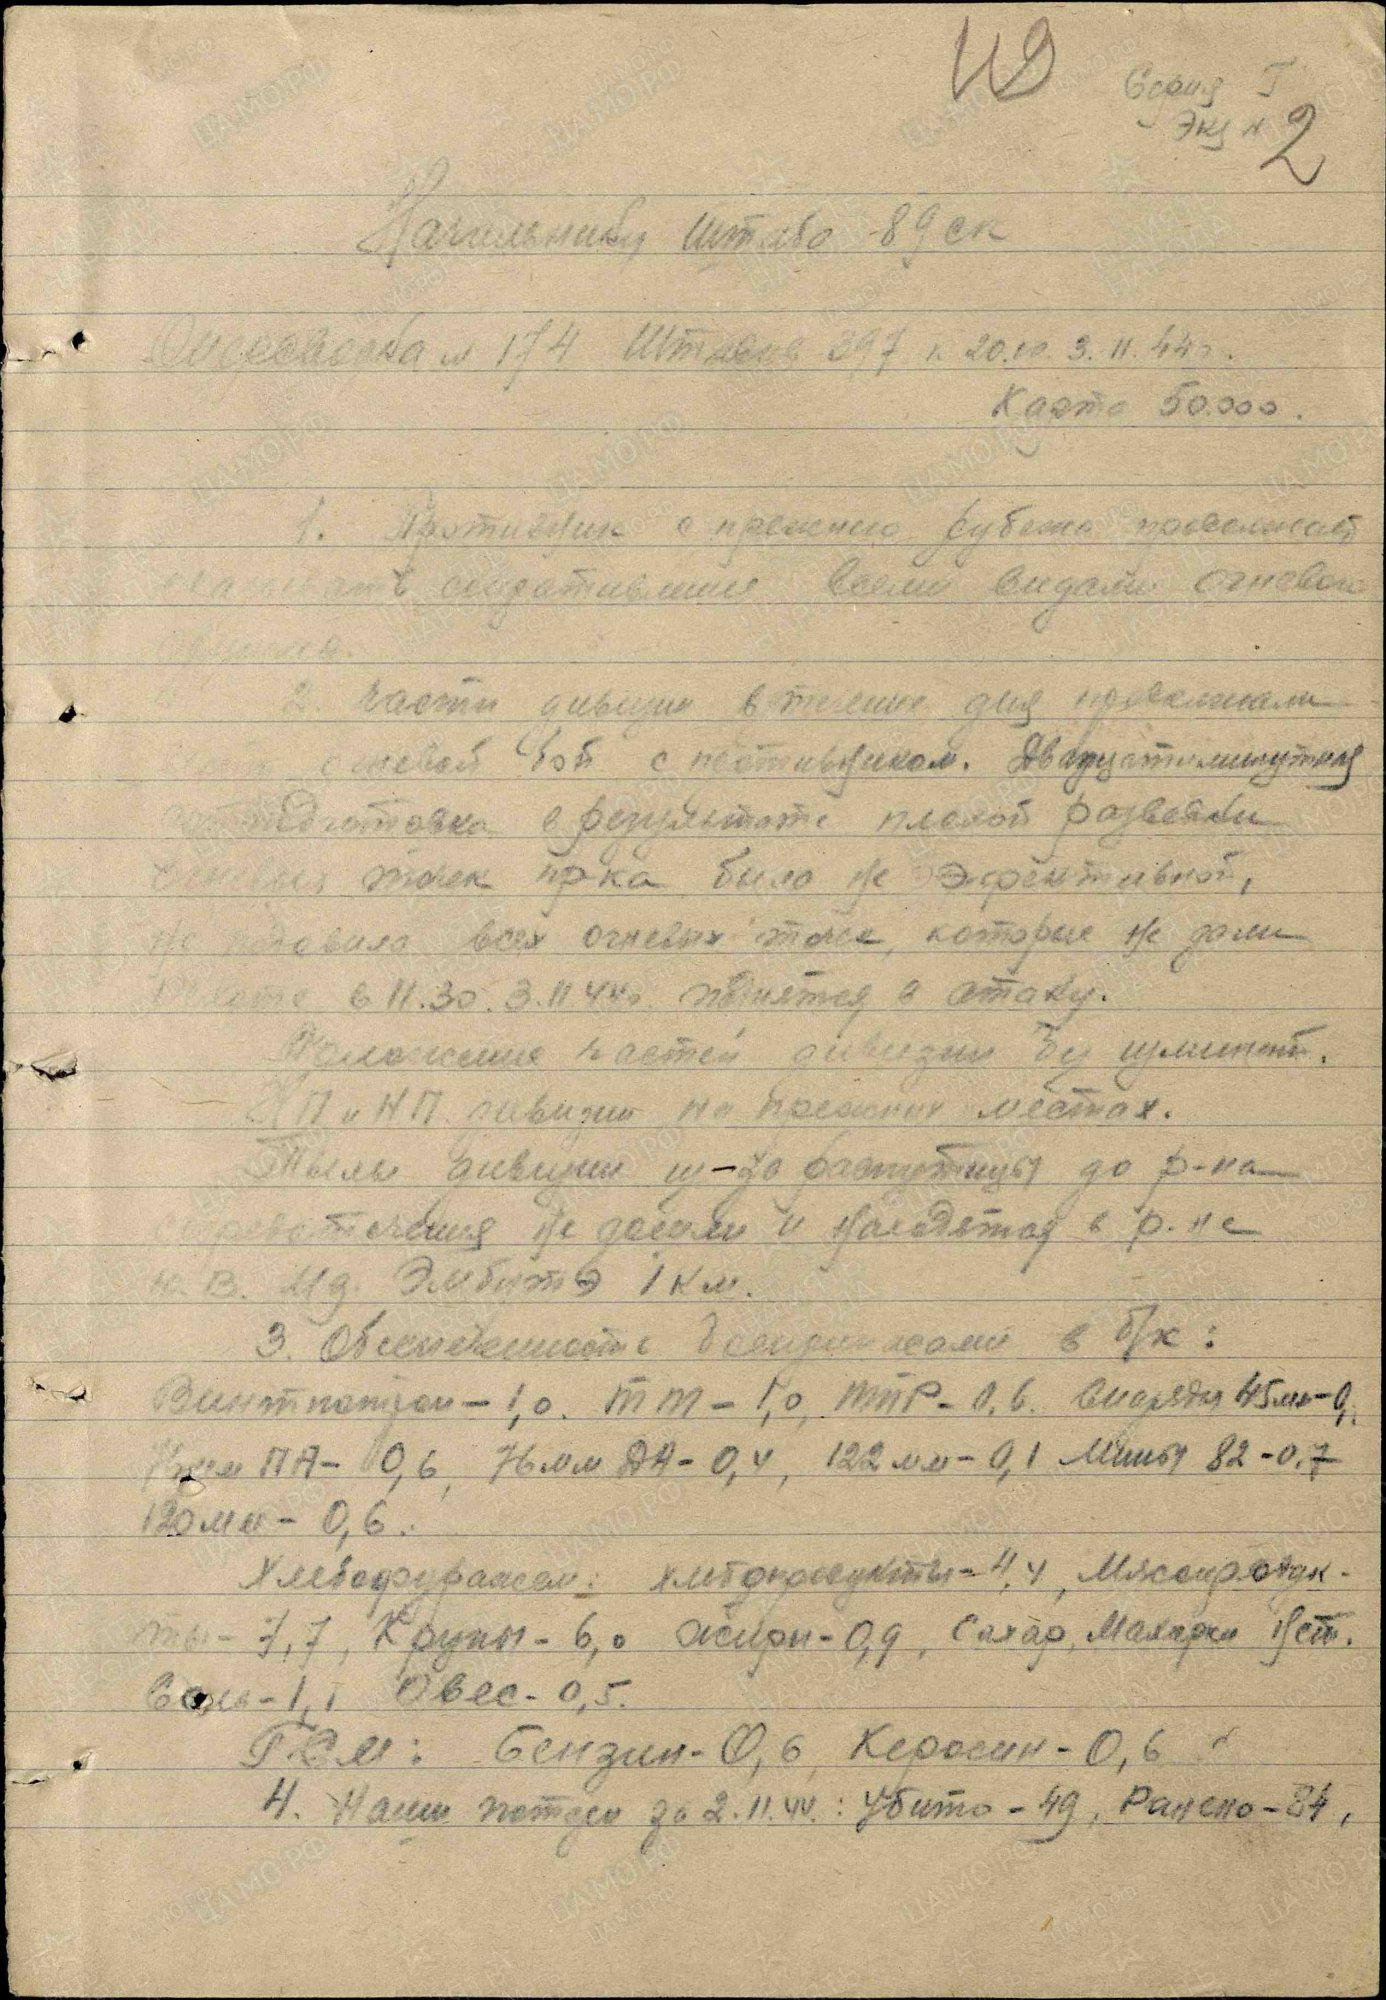 Серия Г
Экз N 2
Начальнику штаба 89 ск
Оперсводка N 174 Штадив 397 к 20.00 3.11.44г.
Карта 50.000.
1. Противник с прежнего рубежа продолжает
оказывать сопротивление всеми видами огневого
2. Части дивизии в течение дня продолжали
огневой бой с противником. Двадцатиминутная
артподготовка в результате плохой разведки
огневых точек пр-ка была не эфективной,
не подавила всех огневых точек, которые не дали
пехоте в 11.30. 3.11 44г. поднятся в атаку.
Положение частей дивизии без изменений.
КП и НП дивизии на прежних местах.
Тылы дивизии из-за распутицы до р-на
сосредоточения не дошли и находятся в р-не
ю.В. Мз. Эмбитэ 1 км.
3. Обеспеченность боеприпасами в б/к:
Винтпатрон - 1,0. ТТ - 1,0, ПТР - 0,6. Снаряды 45мм - 0,
76мм ПА - 0,6, 76мм ДА - 0,4, 122 мм - 0,1 Мины 82 - 0,7
120 мм - 0,6.
Хлебофуражом: хлебопродукты - 4,4, Мясопродук-
ты - 7,7, Крупы - 6,0 Жиры - 0,9, Сахар, Махорки нет.
Соль - 1,1 Овес - 0,5.
ГСМ: Бензин - 0,6, Керосин - 0,6
4. Наши потери за 2.11.44.: Убито - 49, Ранено - 84,